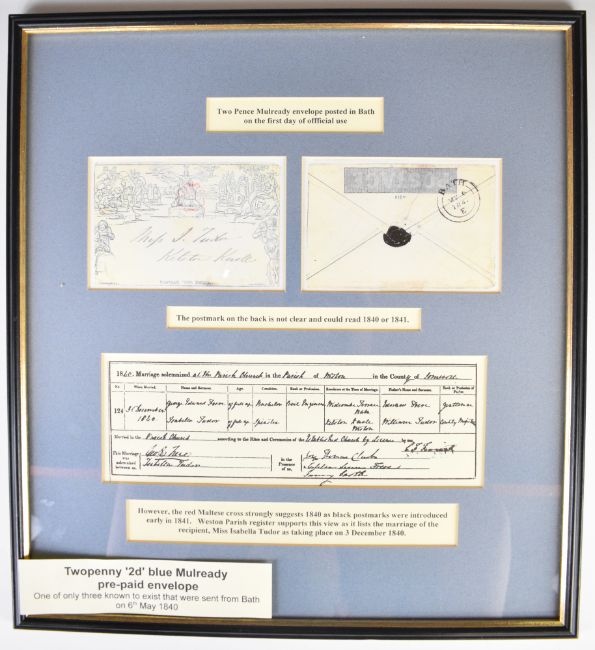 Two Pence Mulready envelope posted in Bath
on the first day of offficial use
Miss I. Tudor
Kelston Knoll
POSTAGE
BATH
E
The postmark on the back is not clear and could read 1840 or 1841.
1840. Marriage solemnized at the Parish Church in the Parish of Weston in the County of Somerset
No. When Married. Name and Surname. Age. Condition. Rank or Profession. Residence at the Time of Marriage. Father's Name and Surname. Rank or Profession of Father.
124 3 December George Edward Bachelor Civil Engineer Widcombe Terrace Bath Gentleman
1840 Isabella Tudor Spinster Kelston Knoll Weston William Tudor
Married in the Parish Church according to the Rites and Ceremonies of the Established Church by Licence by me,
This Marriage was solemnized between us, Isabella Tudor in the Presence of us,
However, the red Maltese cross strongly suggests 1840 as black postmarks were introduced
early in 1841. Weston Parish register supports this view as it lists the marriage of the
recipient, Miss Isabella Tudor as taking place on 3 December 1840.
Twopenny '2d' blue Mulready
pre-paid envelope
One of only three known to exist that were sent from Bath
on 6th May 1840